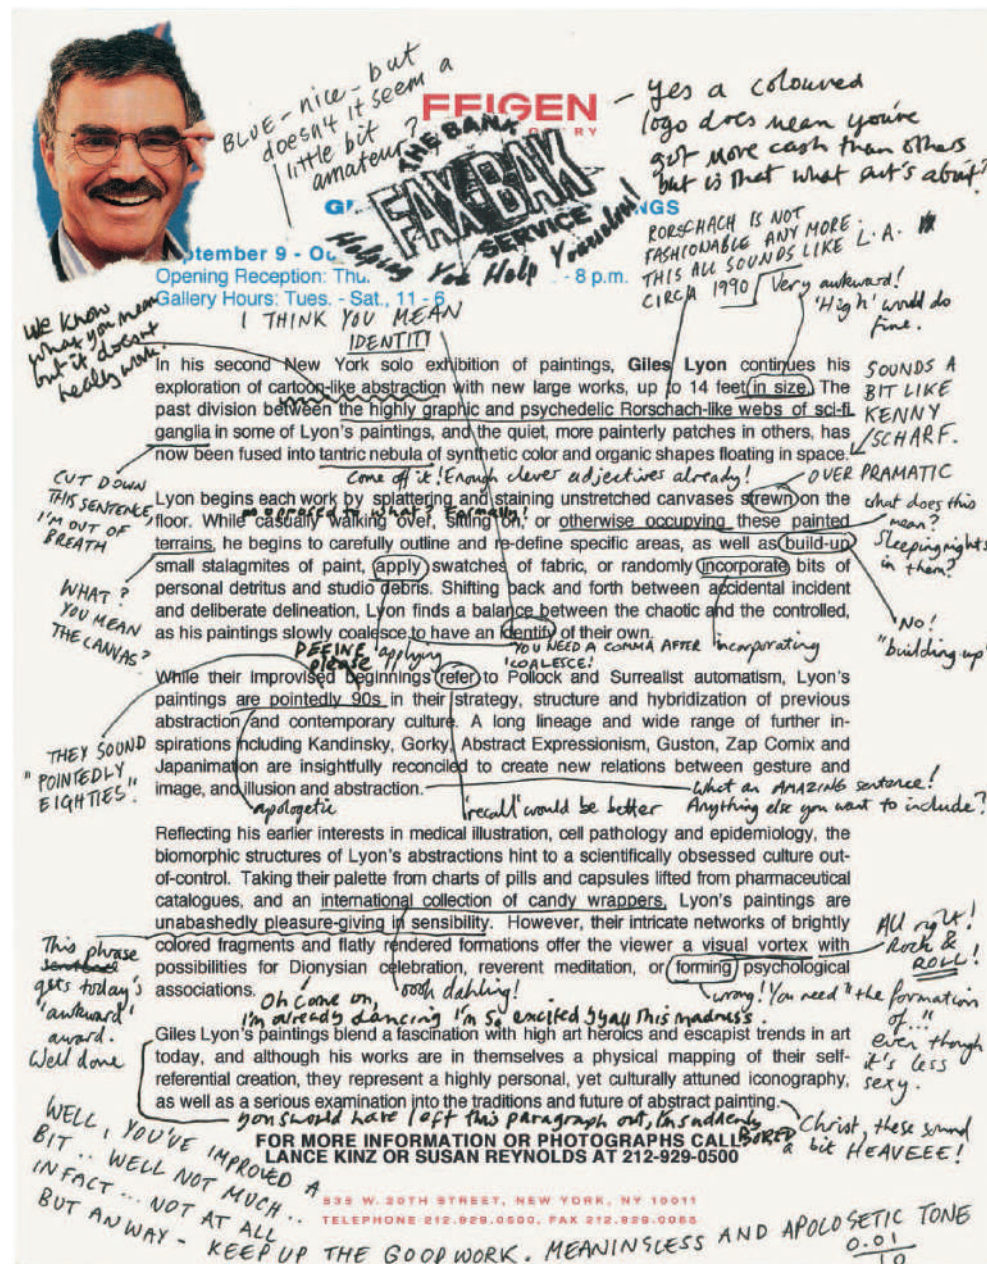 BLUE - nice - but
doesn't it seem a
little bit
amateur?
FEIGEN
THE BANK
FAX-BAK
SERVICE
Helping You Help Yourselves!
- yes a coloured
logo does mean you're
got more cash than others
but is that what art's about?
NGS
RORSCHACH IS NOT
FASHIONABLE ANY MORE.
THIS ALL SOUNDS LIKE L.A.
CIRCA 1990
Very awkward!
'High' would do
fine.
September 9 - Oc
Opening Reception: Thu. - 8 p.m.
Gallery Hours: Tues. - Sat., 11 - 6
I THINK YOU MEAN
IDENTITY
We know
what you mean
but it doesn't
really work.
In his second New York solo exhibition of paintings, Giles Lyon continues his
exploration of cartoon-like abstraction with new large works, up to 14 feet in size. The
past division between the highly graphic and psychedelic Rorschach-like webs of sci-fi
ganglia in some of Lyon's paintings, and the quiet, more painterly patches in others, has
now been fused into tantric nebula of synthetic color and organic shapes floating in space.
SOUNDS A
BIT LIKE
KENNY
SCHARF.
CUT DOWN
THIS SENTENCE,
I'M OUT OF
BREATH
Come off it! Enough clever adjectives already!
OVER DRAMATIC
Lyon begins each work by splattering and staining unstretched canvases strewn on the
as opposed to what? Formally!
floor. While casually walking over, sitting on, or otherwise occupying these painted
terrains, he begins to carefully outline and re-define specific areas, as well as build-up
small stalagmites of paint, apply swatches of fabric, or randomly incorporate bits of
personal detritus and studio debris. Shifting back and forth between accidental incident
and deliberate delineation, Lyon finds a balance between the chaotic and the controlled,
as his paintings slowly coalesce to have an identify of their own.
what does this
mean?
Sleeping nights
in them?
WHAT?
YOU MEAN
THE CANVAS?
NO!
"building up"
DEFINE
please
applying
YOU NEED A COMMA AFTER
'COALESCE'!
incorporating
While their improvised beginnings refer to Pollock and Surrealist automatism, Lyon's
paintings are pointedly 90s in their strategy, structure and hybridization of previous
abstraction and contemporary culture. A long lineage and wide range of further in-
spirations including Kandinsky, Gorky, Abstract Expressionism, Guston, Zap Comix and
Japanimation are insightfully reconciled to create new relations between gesture and
image, and illusion and abstraction.
THEY SOUND
"POINTEDLY
EIGHTIES."
apologetic
'recall' would be better
What an AMAZING sentence!
Anything else you want to include?
Reflecting his earlier interests in medical illustration, cell pathology and epidemiology, the
biomorphic structures of Lyon's abstractions hint to a scientifically obsessed culture out-
of-control. Taking their palette from charts of pills and capsules lifted from pharmaceutical
catalogues, and an international collection of candy wrappers, Lyon's paintings are
unabashedly pleasure-giving in sensibility. However, their intricate networks of brightly
colored fragments and flatly rendered formations offer the viewer a visual vortex with
possibilities for Dionysian celebration, reverent meditation, or forming psychological
associations.
This phrase
gets today's
'awkward'
award.
Well done
All right!
Rock &
ROLL!
Oh come on,
I'm already dancing I'm so excited by all this madness.
oooh dahling!
wrong! You need "the formation
of..."
even though
it's less
sexy.
Giles Lyon's paintings blend a fascination with high art heroics and escapist trends in art
today, and although his works are in themselves a physical mapping of their self-
referential creation, they represent a highly personal, yet culturally attuned iconography,
as well as a serious examination into the traditions and future of abstract painting.
you should have left this paragraph out, I'm suddenly
BORED
Christ, these sound
a bit HEAVEEE!
FOR MORE INFORMATION OR PHOTOGRAPHS CALL
LANCE KINZ OR SUSAN REYNOLDS AT 212-929-0500
535 W. 20TH STREET, NEW YORK, NY 10011
TELEPHONE 212.929.0500, FAX 212.929.0065
WELL, YOU'VE IMPROVED A
BIT .. WELL NOT MUCH ..
IN FACT ... NOT AT ALL
BUT ANWAY - KEEP UP THE GOOD WORK. MEANINGLESS AND APOLOGETIC TONE
0.01
10